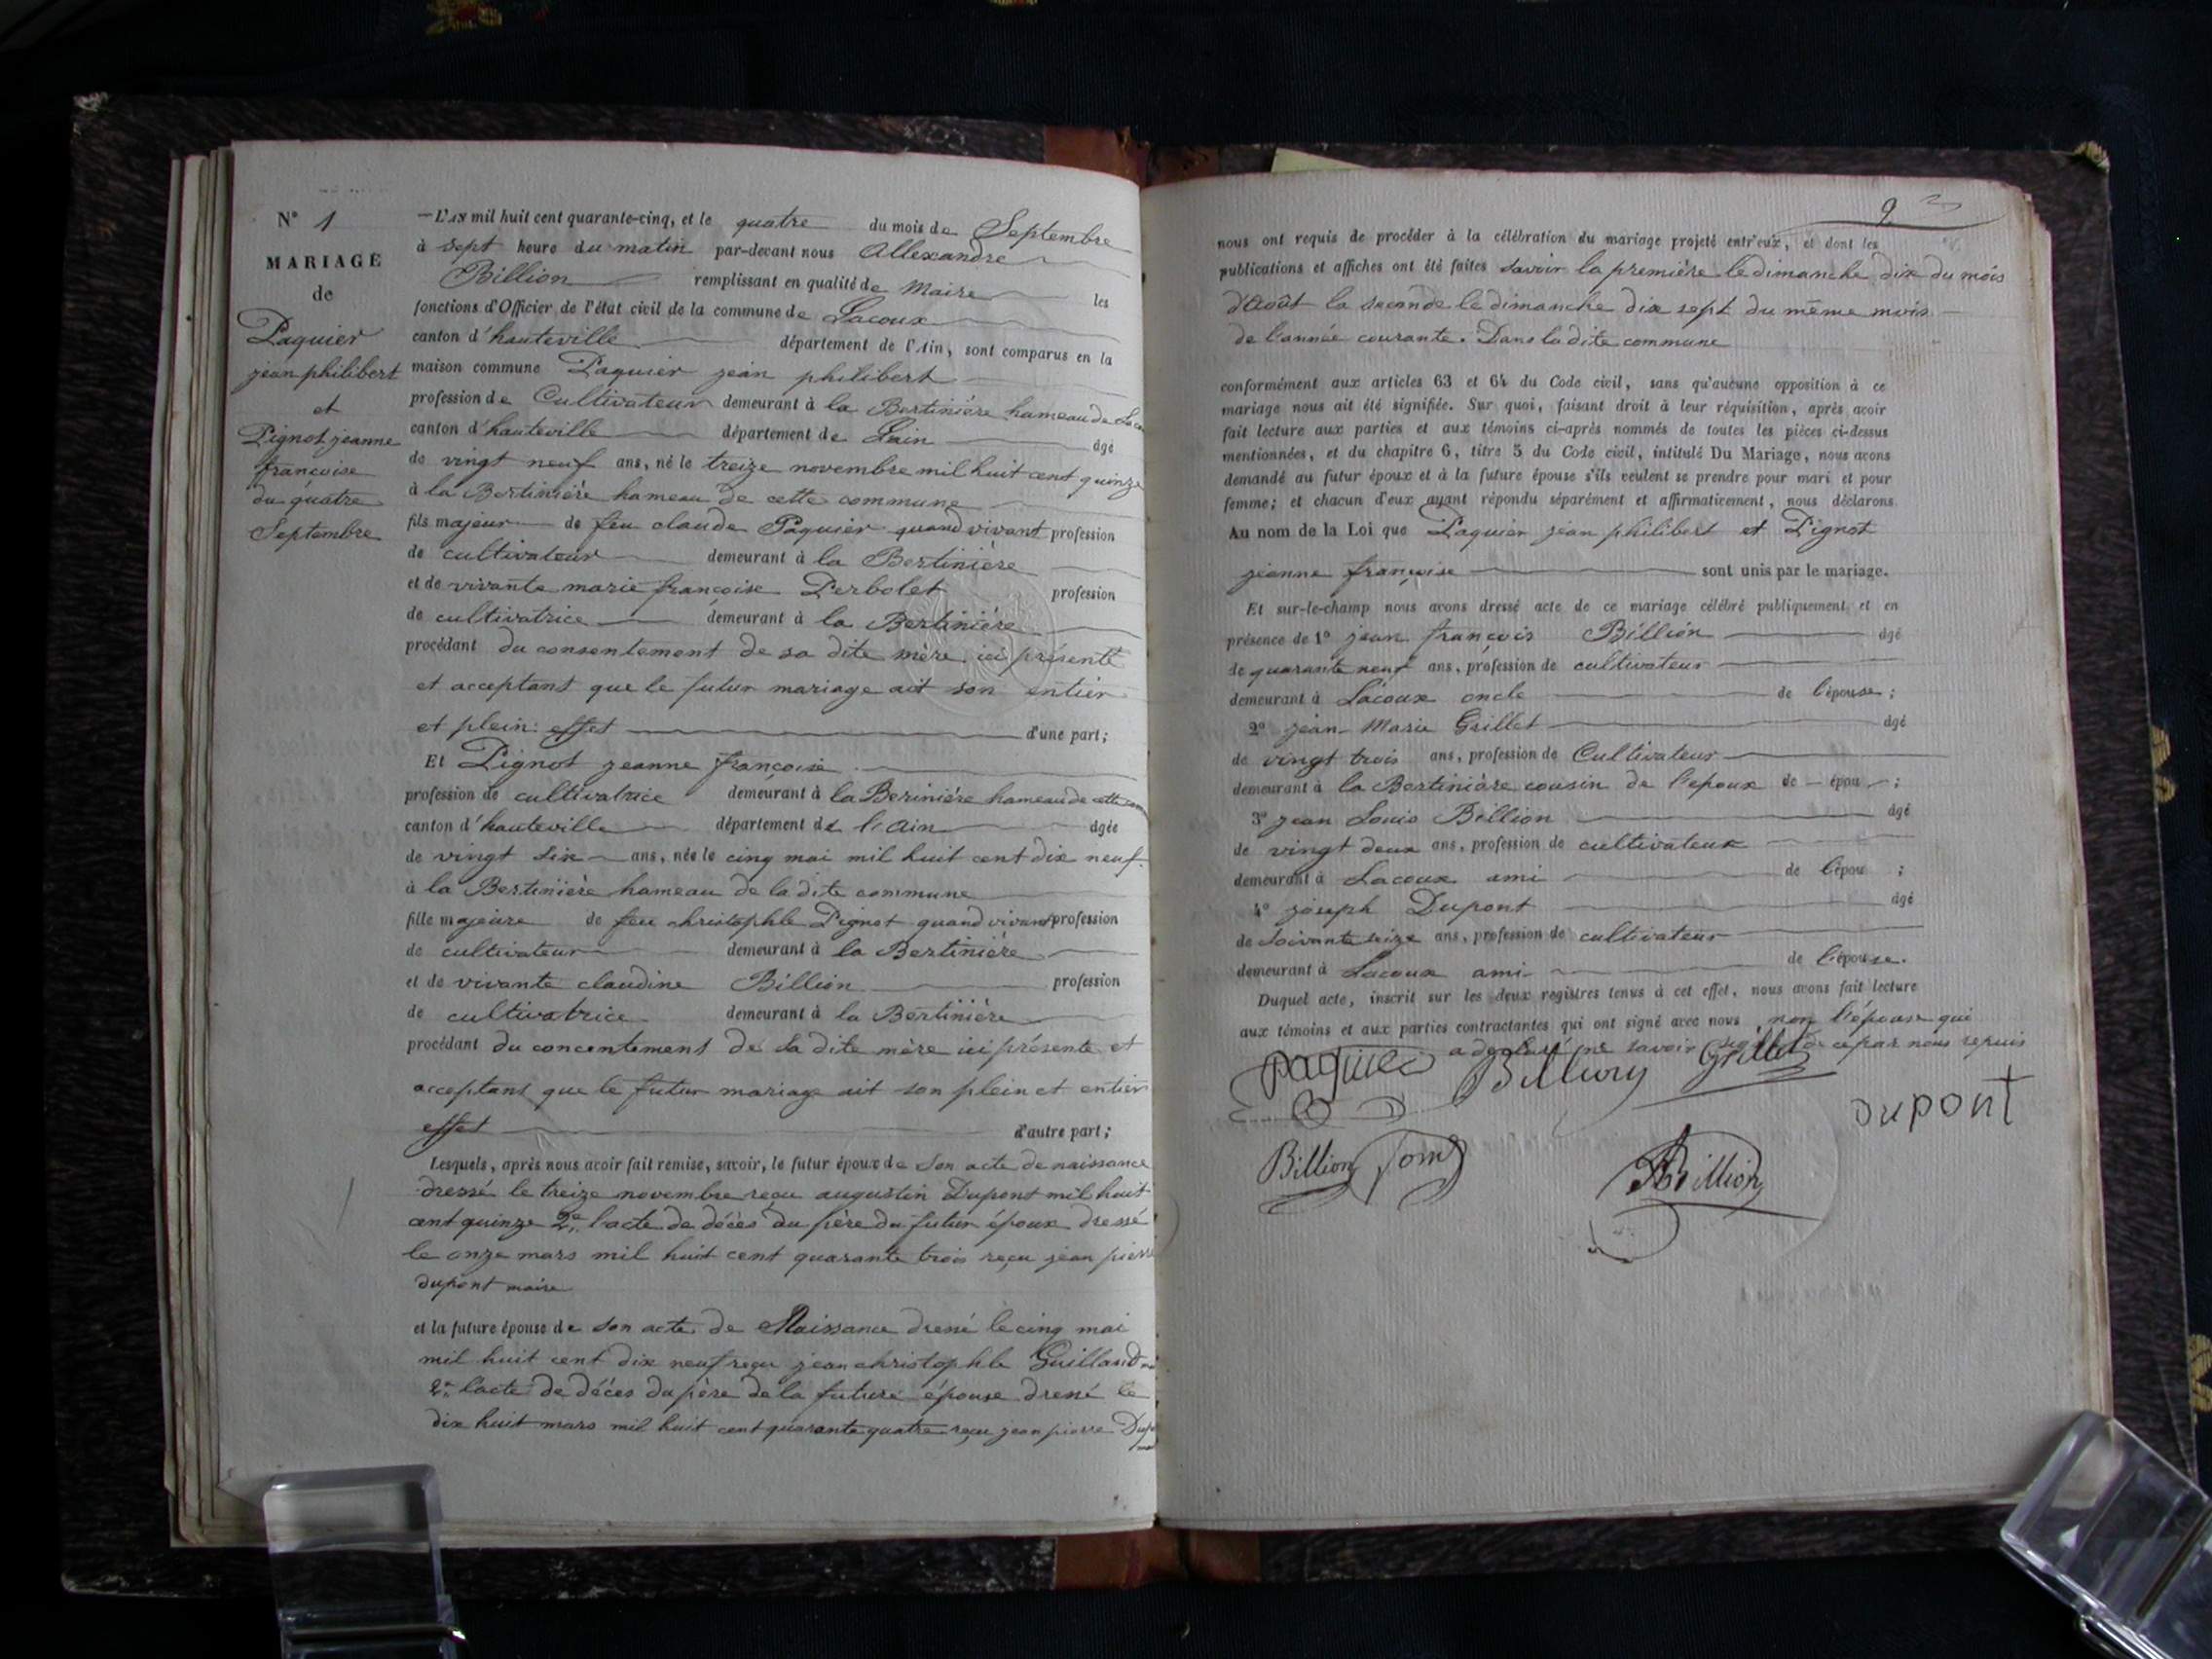 N° 1
MARIAGE
de
Paquier
jean philibert
et
Pignot jeanne
françoise
du quatre
Septembre
L'AN mil huit cent quarante-cinq, et le quatre du mois de Septembre
à sept heure du matin par-devant nous Allexandre
Billion remplissant en qualité de Maire les
fonctions d'Officier de l'état civil de la commune de Lacoux
canton d'hauteville département de l'Ain, sont comparus en la
maison commune Paquier jean philibert
profession de Cultivateur demeurant à la Bertinière hameau de
canton d'hauteville département de Lain âgé
de vingt neuf ans, né le treize novembre mil huit cent quinze
à la Bertinière hameau de cette commune
fils majeur de feu claude Paquier quand vivant profession
de cultivateur demeurant à la Bertinière
et de vivante marie françoise Perbolet profession
de cultivatrice demeurant à la Bertinière
procédant du consentement de sa dite mère ici présente
et acceptant que le futur mariage ait son entier
et plein effet d'une part;
Et Pignot jeanne françoise
profession de cultivatrice demeurant à la Berinière hameau de cette
canton d'hauteville département de l'Ain âgée
de vingt six ans, née le cinq mai mil huit cent dix neuf
à la Bertinière hameau de la dite commune
fille majeure de feu christophle Pignot quand vivant profession
de cultivateur demeurant à la Bertinière
et de vivante claudine Billion profession
de cultivatrice demeurant à la Bertinière
procédant du concentement de sa dite mère ici présente et
acceptant que le futur mariage ait son plein et entier
effet d'autre part;
Lesquels, après nous avoir fait remise, savoir, le futur époux de son acte de naissance
dressé le treize novembre reçu augustin Dupont mil huit
cent quinze 2° l'acte de décès du père du futur époux dressé
le onze mars mil huit cent quarante trois reçu jean pierre
dupont maire
et la future épouse de son acte de Naissance dressé le cinq mai
mil huit cent dix neuf reçu jean christophle Guilland
2° l'acte de décès du père de la future épouse dressé le
dix huit mars mil huit cent quarante quatre reçu jean pierre
9
nous ont requis de procéder à la célébration du mariage projeté entr'eux, et dont les
publications et affiches ont été faites savoir la première le dimanche dix du mois
d'Août la seconde le dimanche dix sept du même mois
de l'année courante. Dans la dite commune
conformément aux articles 63 et 64 du Code civil, sans qu'aucune opposition à ce
mariage nous ait été signifiée. Sur quoi, faisant droit à leur réquisition, après avoir
fait lecture aux parties et aux témoins ci-après nommés de toutes les pièces ci-dessus
mentionnées, et du chapitre 6, titre 5 du Code civil, intitulé Du Mariage, nous avons
demandé au futur époux et à la future épouse s'ils veulent se prendre pour mari et pour
femme; et chacun d'eux ayant répondu séparément et affirmativement, nous déclarons
Au nom de la Loi que Paquier jean philibert et Pignot
jeanne françoise sont unis par le mariage.
Et sur-le-champ nous avons dressé acte de ce mariage célébré publiquement et en
présence de 1° jean françois Billion âgé
de quarante neuf ans, profession de cultivateur
demeurant à Lacoux oncle de l'épouse;
2° jean Marie Grillet âgé
de vingt trois ans, profession de Cultivateur
demeurant à la Bertinière cousin de l'epoux de épou ;
3° jean Louis Billion âgé
de vingt deux ans, profession de cultivateur
demeurant à Lacoux ami de l'épou ;
4° joseph Dupont âgé
de soixante seize ans, profession de cultivateur
demeurant à Lacoux ami de l'épouse.
Duquel acte, inscrit sur les deux registres tenus à cet effet, nous avons fait lecture
aux témoins et aux parties contractantes qui ont signé avec nous non l'épouse qui
a declaré ne savoir de ce par nous requis
paquier Grillet
dupont
Billion Billion